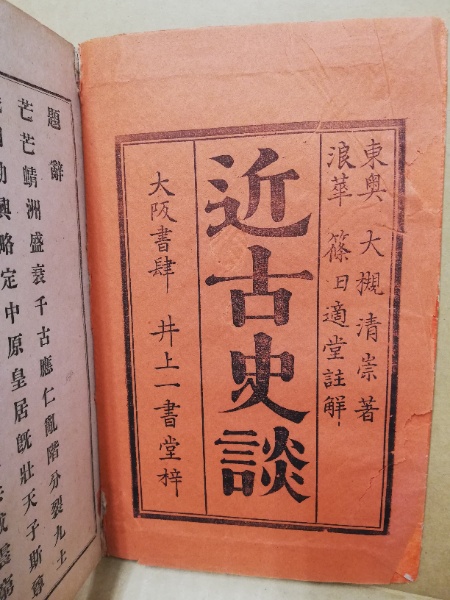 東奥 大槻清崇著
浪華 篠田適堂註解
近古史談
大阪書肆 井上一書堂梓
題辭
芒芒蜻洲盛衰千古應仁亂階分裂九土
興略定中原皇居既壯天子斯尊